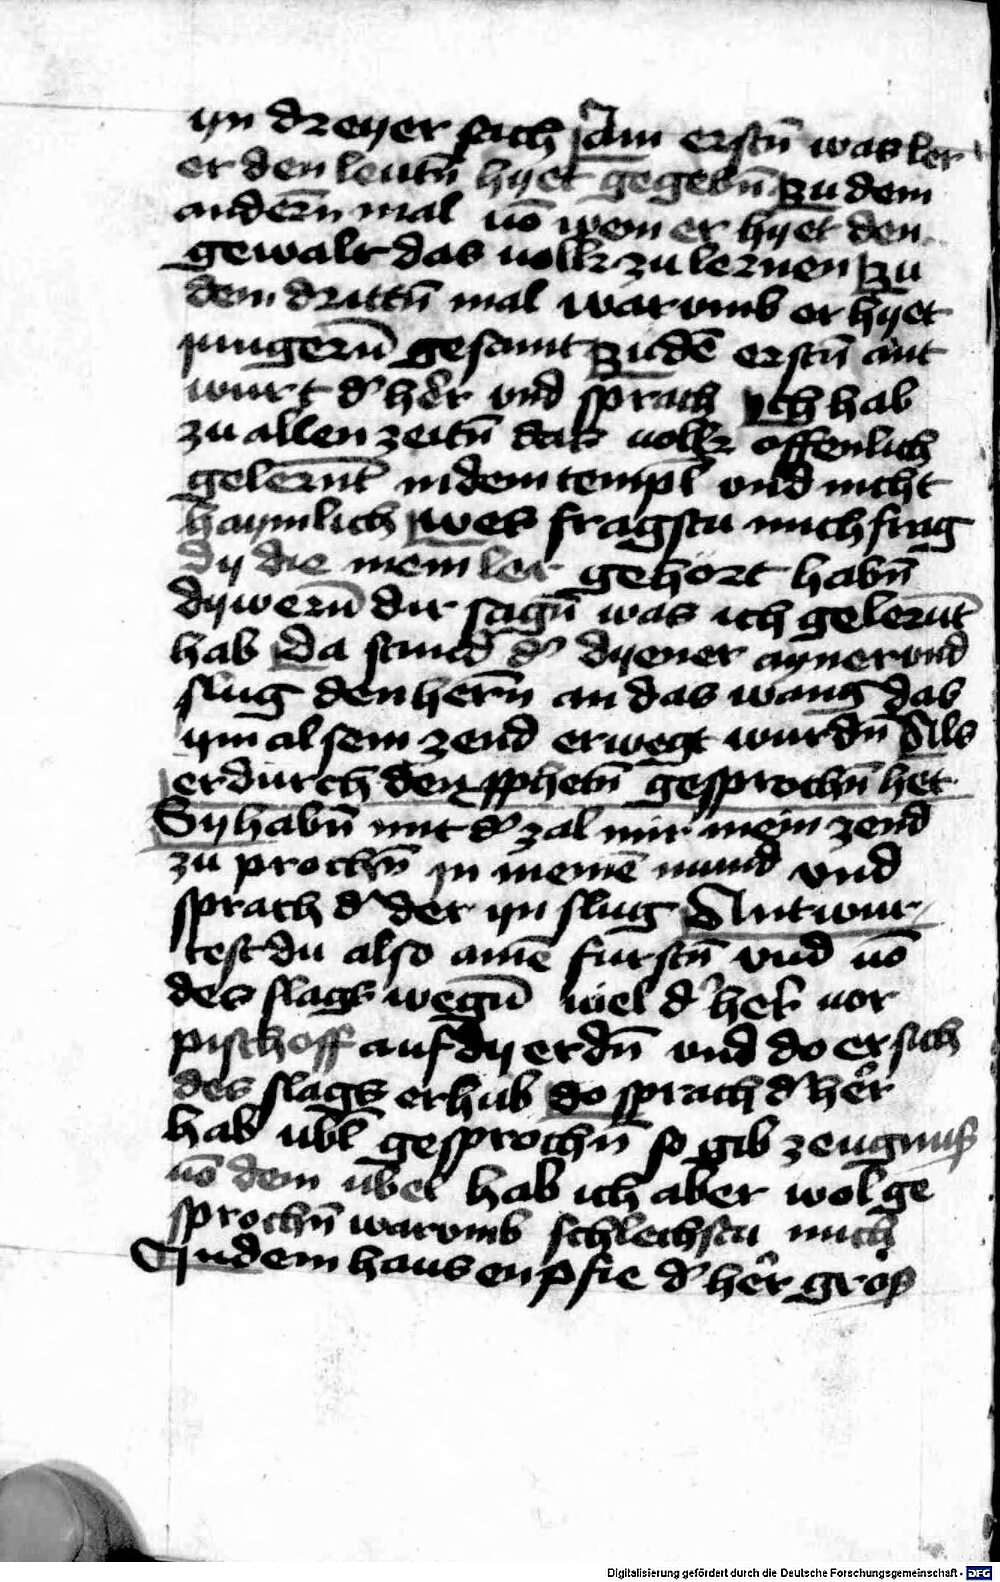 yn dreyer sach Am erstn̄ was ler
er den leutn̄ hyet gegebn̄ Zu dem
andern̄ mal uō wem er hyet den
gewalt das uolk zu lernen Zu
dem drittn̄ mal warumb er hyet
jungern̄ gesamt Zu dē erstn̄ ant
wurt d' her̄ vnd sprach Ich hab
zu allen zeitn̄ das uolk offenlich
gelernt̄ in dem templ̄ vnd nicht
haymlich wes fragstu mich frag
dy die mein ler gehort habn̄
dy wern̄ dir sagn̄ was ich gelernt̄
hab Da stund d' dyener ayner vnd
slug den hern̄ an das wang das
ym al sein zend erwegt wurdn̄ Als
er durch den ꝓphetn̄ gesprochn̄ het
Sy habn̄ mit d' zal mir mein zend
zu prochn̄ in meinē mund vnd
sprach d' der yn slug Antwur
test du also ainē furstn̄ vnd uō
des slags wegn̄ viel d' her̄ uor
pischoff auf dy erdn̄ vnd do er sich
des slags erhub do sprach d' her̄
hab ubl̄ gesprochn̄ so gib zeugnuß
uō dem ubel hab ich aber wol ge
sprochn̄ warumb schlechstu mich
In dem haus enpfie d' her̄ groß
Digitalisierung gefördert durch die Deutsche Forschungsgemeinschaft - DFG